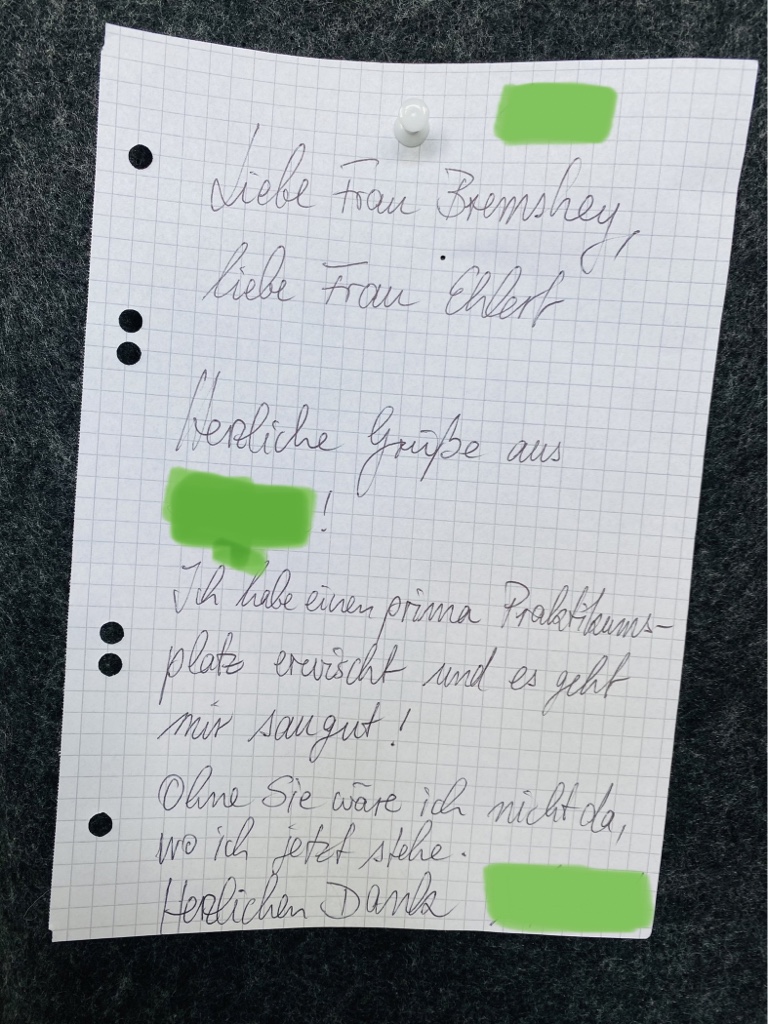 Liebe Frau Bremshey,
liebe Frau Ehlert
Herzliche Grüße aus
!
Ich habe einen prima Praktikums-
platz erwischt und es geht
mir saugut!
Ohne Sie wäre ich nicht da,
wo ich jetzt stehe.
Herzlichen Dank